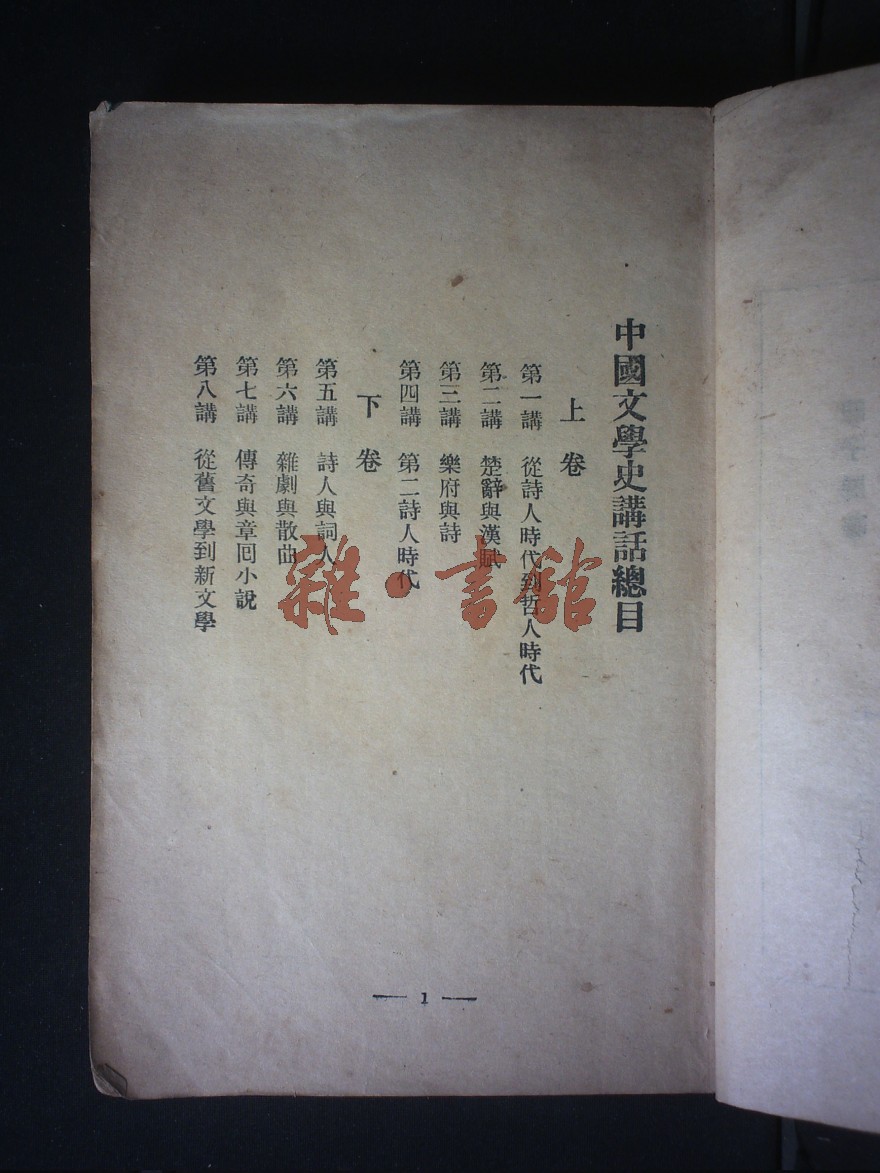 中國文學史講話總目
上卷
第一講　從詩人時代到哲人時代
第二講　楚辭與漢賦
第三講　樂府與詩
第四講　第二詩人時代
下卷
第五講　詩人與詞人
第六講　雜劇與散曲
第七講　傳奇與章回小說
第八講　從舊文學到新文學
— 1 —
雜·書館